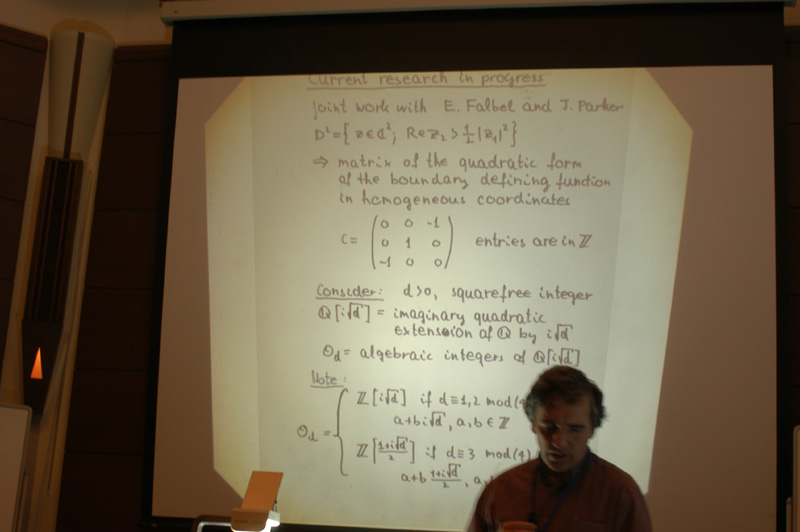 Current research in progress
Joint work with E. Falbel and J. Parker
D²={ z∈ℂ²; Re z₂ > ½|z₁|² }
⇒ matrix of the quadratic form
of the boundary defining function
in homogeneous coordinates
C = ( 0 0 -1
0 1 0
-1 0 0 ) entries are in ℤ
Consider: d>0, squarefree integer
ℚ[i√d] = imaginary quadratic
extension of ℚ by i√d
O_d = algebraic integers of ℚ[i√d]
Note:
O_d = { ℤ[i√d] if d≡1,2 mod(4
a+bi√d, a,b ∈ ℤ
ℤ[(1+i√d)/2] if d≡3 mod(4)
a+b (1+i√d)/2, a,